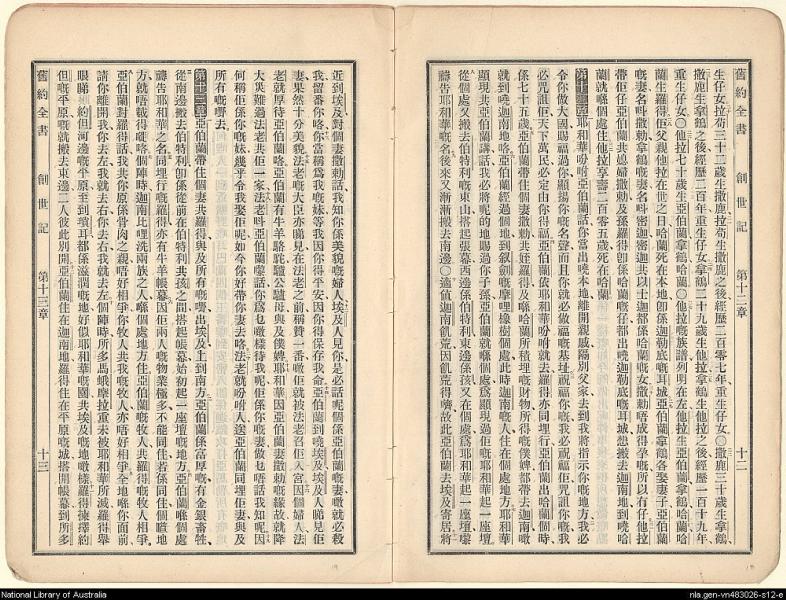 舊約全書 創世記 第十二章 十二
生仔女拉苟三十二歲生撒鹿拉苟生撒鹿之後經歷二百零七年重生仔女〇撒鹿三十歲生拿鶴
撒鹿生拿鶴之後經歷二百年重生仔女拿鶴二十九歲生他拉拿鶴生他拉之後經歷一百十九年
重生仔女〇他拉七十歲生亞伯蘭拿鶴哈蘭〇他拉嘅族譜列明在左他拉生亞伯蘭拿鶴哈蘭哈
蘭生羅得佢父親他拉在世之日哈蘭死在本地卽係迦勒底嘅耳城亞伯蘭拿鶴各娶妻子亞伯蘭
嘅妻名呌撒勒拿鶴嘅妻名呌密迦密迦共以士迦都係哈蘭嘅女撒勒唔成得孕嘅所以冇仔他拉
帶佢仔亞伯蘭共媳婦撒勒及孫羅得卽係哈蘭嘅仔都出嘵迦勒底嘅耳城想搬去迦南地到嘵哈
蘭就喺個處住他拉享壽二百零五歲死在哈蘭
第十二章 耶和華吩咐亞伯蘭話你當出嘵本地離開親戚隔別父家去到我將指示你嘅地方我必
令你做大國賜福過你顯揚你嘅名聲而且你就必做福嘅基址祝福你嘅我必祝福佢咒詛你嘅我
必咒詛佢天下萬民必定由你得福亞伯蘭依耶和華吩咐就去羅得亦同埋行亞伯蘭出哈蘭個時
係七十五歲亞伯蘭帶住個妻撒勒共姪羅得及喺哈蘭所積埋嘅財物所得嘅僕婢都帶去迦南噉
就到嘵迦南地咯亞伯蘭經過個地到叙劍嘅摩哩橡樹個處此時迦南嘅人住在個處地方耶和華
顯現共亞伯蘭講話我必將呢的地賜過你子孫亞伯蘭就喺個處為顯現過佢嘅耶和華起一座壇
從個處又搬去伯特利嘅東山搭起張幕西邊係伯特利東邊係孩又在個處為耶和華起一座壇嚟
禱告耶和華嘅名後來又漸漸搬去南邊〇適値迦南飢荒因飢荒得嚌故此亞伯蘭去埃及寄居將
近到埃及對個妻撒勒話我知你係美貌嘅婦人埃及人見你是必話呢個係亞伯蘭嘅妻噉就必殺
我留番你咯你當稱爲我嘅妹等我因你得平安因你得保存我命亞伯蘭到嘵埃及埃及人睇見佢
妻果然十分美貌法老嘅大臣亦睇見在法老之前稱贊一番噉佢就被法老召佢入宮因個婦人法
老就厚待亞伯蘭咯亞伯蘭有牛羊駱駝驢公驢母與及僕婢耶和華因亞伯蘭妻撒勒嘅緣故就降
大災難過法老共佢一家法老呌亞伯蘭嚟話你爲乜噉樣待我呢佢係你嘅妻做乜唔話我知呢因
何稱佢係你嘅妹幾乎令我娶佢呢如今你好帶你妻去咯法老就吩咐人送亞伯蘭同埋佢妻與及
所有嘅嘢去
第十三章 亞伯蘭帶住個妻共羅得與及所有嘅嘢出埃及上到南方亞伯蘭係富厚嘅有金銀畜牲
從南邊搬去伯特利卽係從前在伯特利共孩之間搭起帳幕始初起一座壇嘅地方亞伯蘭喺個處
禱告耶和華之名同埋行嘅羅得亦有牛羊帳幕因佢兩人嘅物業極多不能同住者係同住個嚿地
方就唔載得嘅咯個陣時迦南比哩洗兩族之人喺個處地方住亞伯蘭嘅牧人共羅得嘅牧人相爭
亞伯蘭對羅得話我共你原係骨肉之親唔好相爭你牧人共我嘅牧人亦唔好相爭全地喺你面前
請你離開我你去左我就去右你去右我就去左個陣時所多馬蛾摩拉重未被耶和華所滅羅得舉
眼睇約但河邊嘅平原至到瑣耳都係滋潤嘅地好似耶和華嘅園共埃及嘅地噉樣羅得揀擇約
但嘅平原嘅就搬去東邊二人彼此別開亞伯蘭住在迦南地羅得住在平原嘅城搭開帳幕到所多
舊約全書 創世記 第十三章 十三
National Library of Australia
nla.gen-vn483026-s12-e